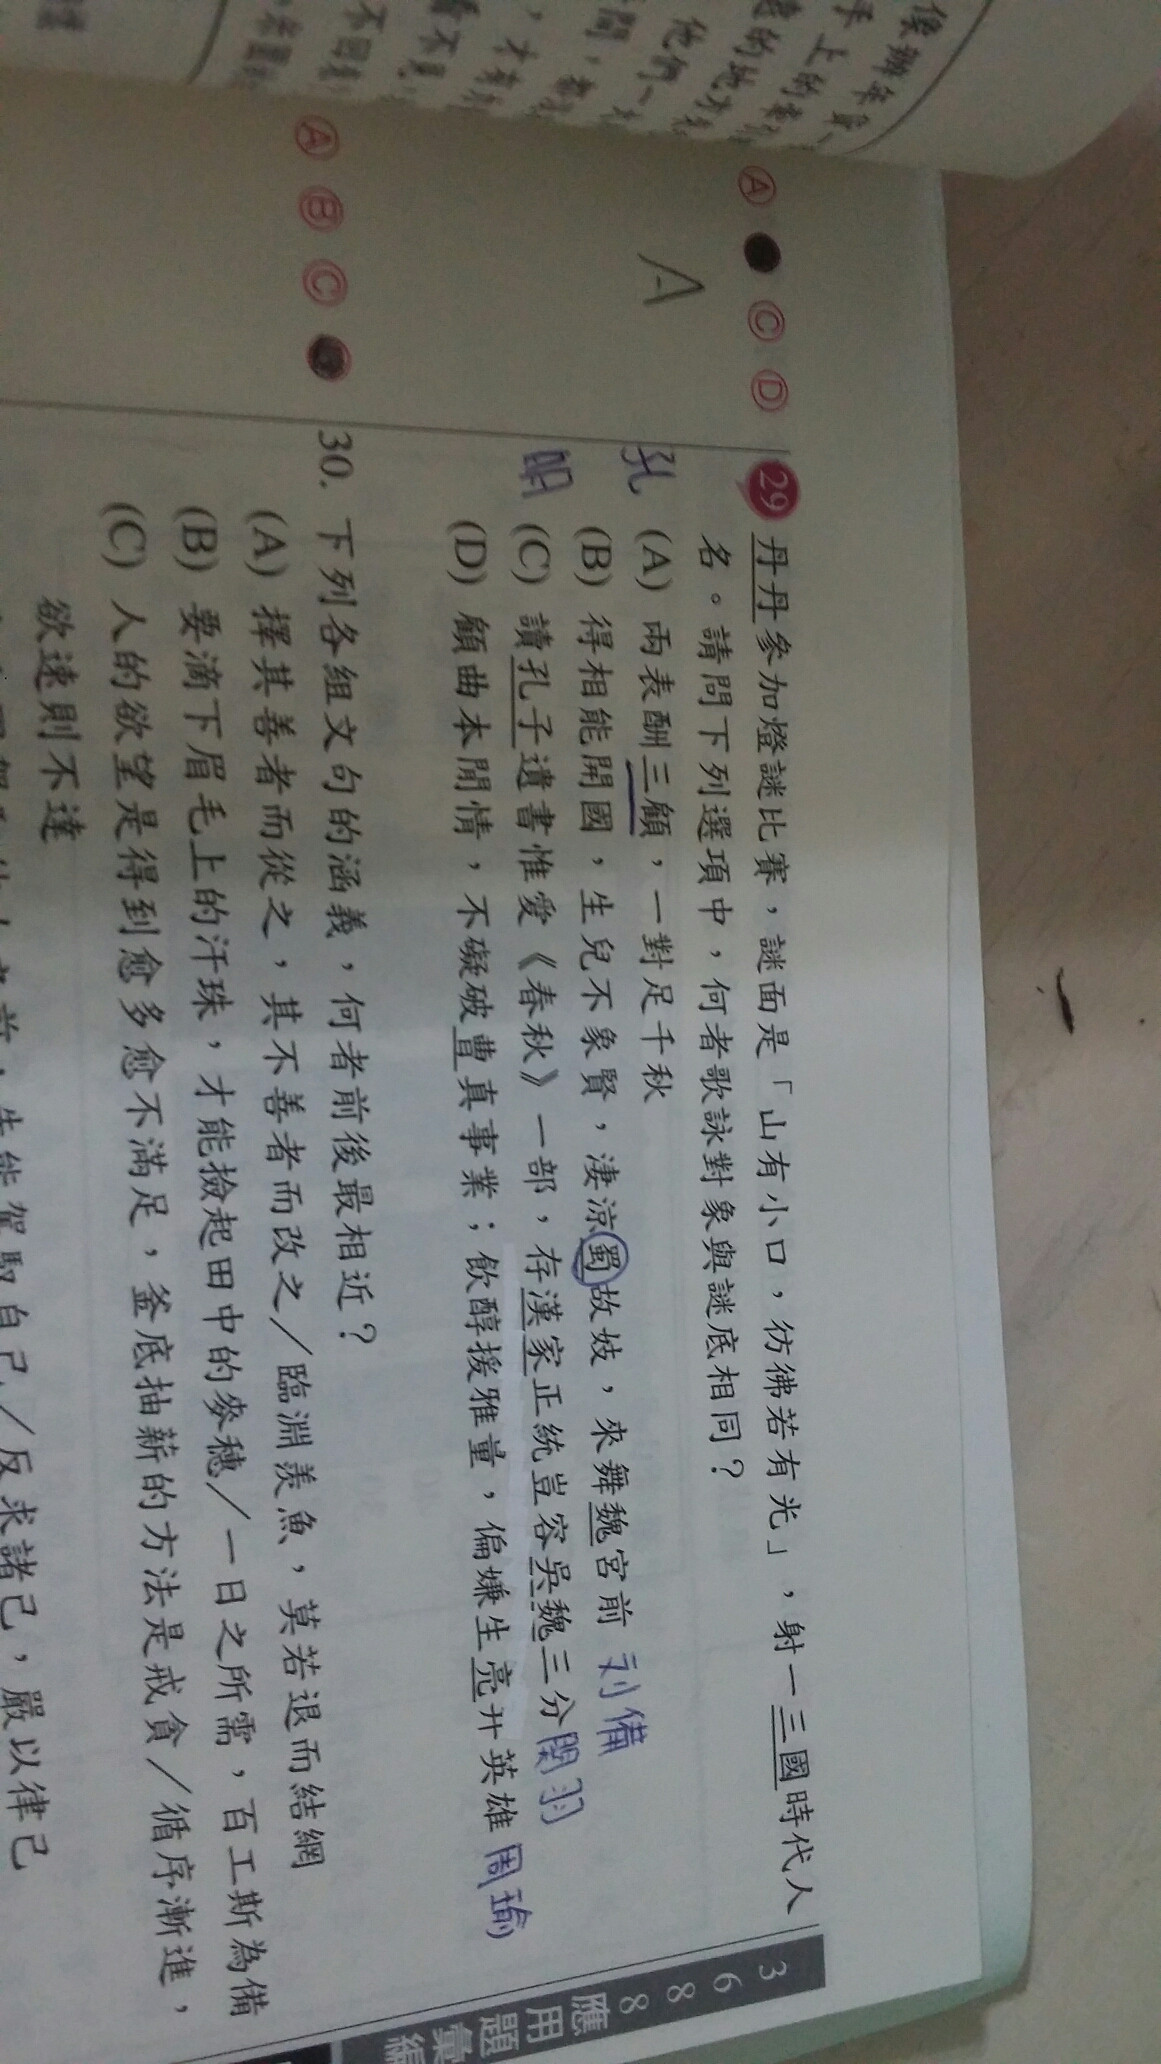 Ⓐ Ⓒ Ⓓ
A
29 丹丹參加燈謎比賽，謎面是「山有小口，彷彿若有光」，射一三國時代人
名。請問下列選項中，何者歌詠對象與謎底相同？
孔明
(A) 兩表酬三顧，一對足千秋
(B) 得相能開國，生兒不象賢，淒涼蜀故妓，來舞魏宮前 刘備
(C) 讀孔子遺書惟愛《春秋》一部，存漢家正統豈容吳魏三分 関羽
(D) 顧曲本閒情，不礙破曹真事業；飲醇援雅量，偏嫌生亮并英雄 周瑜
Ⓐ Ⓑ Ⓒ
30. 下列各組文句的涵義，何者前後最相近？
(A) 擇其善者而從之，其不善者而改之／臨淵羨魚，莫若退而結網
(B) 要滴下眉毛上的汗珠，才能撿起田中的麥穗／一日之所需，百工斯為備
(C) 人的欲望是得到愈多愈不滿足，釜底抽薪的方法是戒貪／循序漸進，
欲速則不達
先能駕馭自己／反求諸己，嚴以律己
3688
應用題彙編
手上的
的地方
他們一
看不見